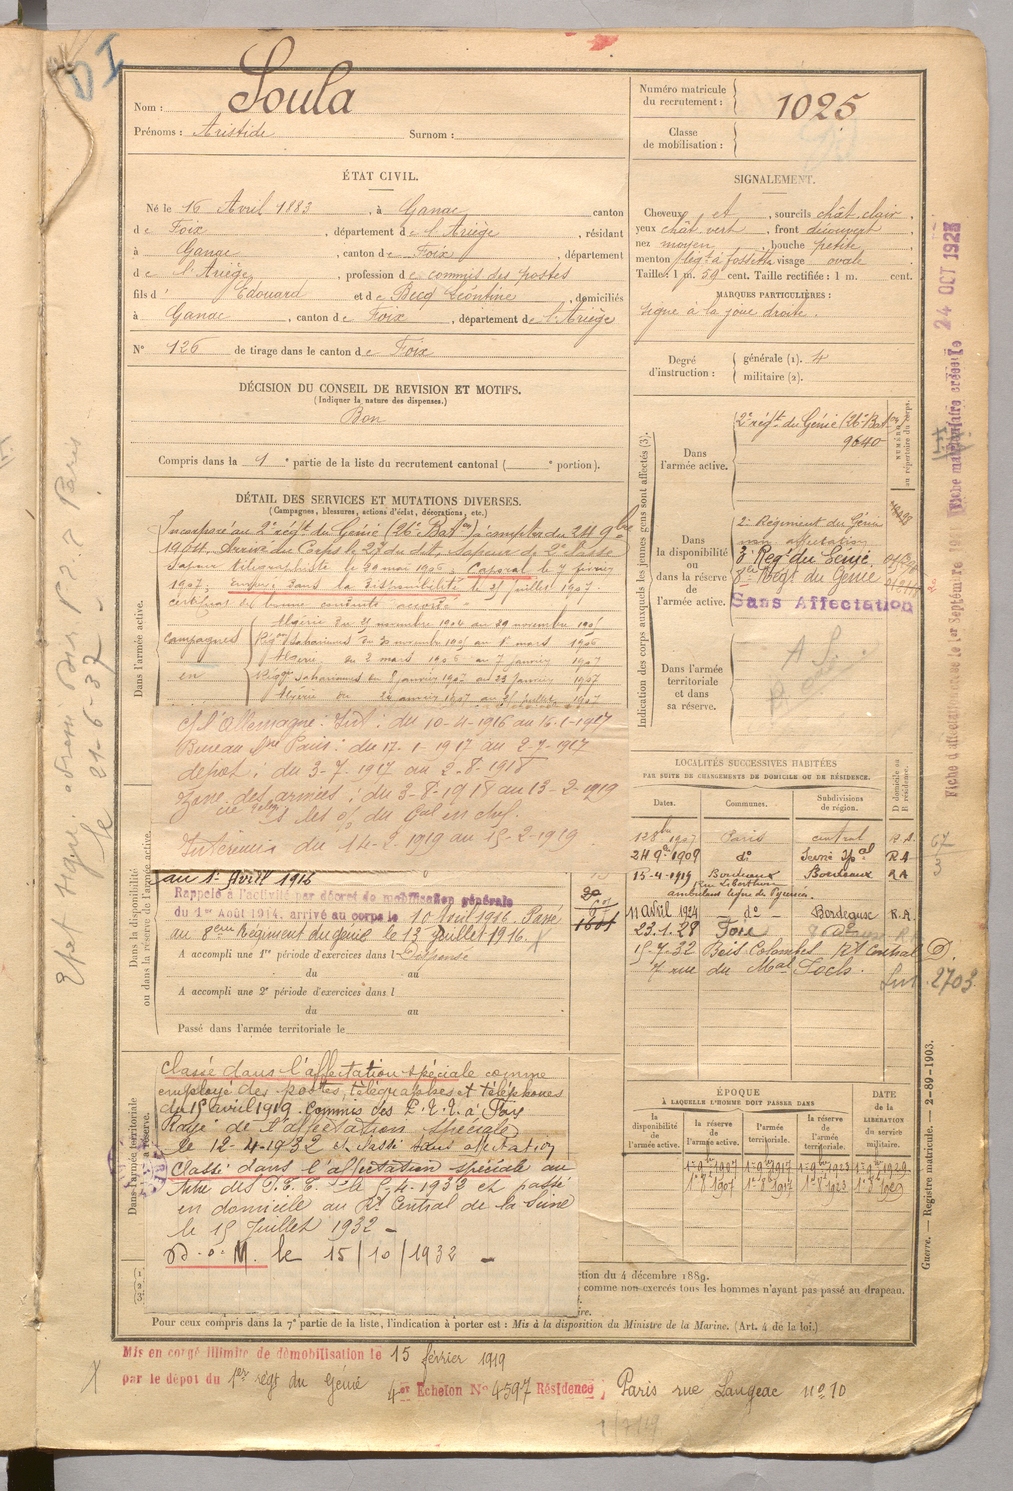 D I
Nom : Soula
Prénoms : Aristide Surnom :
Numéro matricule du recrutement : 1025
Classe de mobilisation :
ÉTAT CIVIL.
Né le 16 Avril 1883, à Ganac canton
de Foix, département de l'Ariège, résidant
à Ganac, canton de Foix, département
de l'Ariège, profession de commis des postes
fils d' Edouard et de Becq Léontine, domiciliés
à Ganac, canton de Foix, département de l'Ariège
N° 126 de tirage dans le canton de Foix
SIGNALEMENT.
Cheveux et, sourcils chât clair,
yeux chât vert, front découvert,
nez moyen, bouche petite,
menton à fossette visage ovale
Taille : 1 m. 59 cent. Taille rectifiée : 1 m. cent.
MARQUES PARTICULIÈRES :
signe à la joue droite.
Degré d'instruction : générale (1). 4
militaire (2).
DÉCISION DU CONSEIL DE REVISION ET MOTIFS.
(Indiquer la nature des dispenses.)
Bon
Compris dans la 1e partie de la liste du recrutement cantonal ( e portion).
DÉTAIL DES SERVICES ET MUTATIONS DIVERSES.
(Campagnes, blessures, actions d'éclat, décorations, etc.)
Dans l'armée active.
Incorporé au 2e régt du Génie (26e Baton) à compter du 24 9bre
1904. Arrivé au Corps le 27 du dit, Sapeur de 2e classe
Sapeur télégraphiste le 20 mai 1906, Caporal le 7 février
1907, Envoyé dans la disponibilité le 31 juillet 1907.
certificat de bonne conduite accordé
Campagnes en
Algérie du 25 novembre 1904 au 29 novembre 1905
Régions Sahariennes du 30 novembre 1905 au 1er mars 1906
Algérie du 2 mars 1906 au 7 janvier 1907
Régions Sahariennes du 8 janvier 1907 au 23 janvier 1907
Algérie du 24 janvier 1907 au 31 juillet 1907
Ct l'Allemagne : Int : du 10-4-1916 au 16-1-1917
Bureau Paris : du 17-1-1917 au 2-7-1917
dépôt : du 3-7-1917 au 2-8-1918
Zone des armées : du 3-8-1918 au 13-2-1919
les du Gal en chef.
Intérieur du 14-2-1919 au 15-2-1919
Dans la disponibilité ou dans la réserve de l'armée active.
au 1er Avril 1916
Rappelé à l'activité par décret de mobilisation générale
du 1er Août 1914, arrivé au corps le 10 Avril 1916. Passé
au 8ème Régiment du génie le 13 juillet 1916.
A accompli une 1e période d'exercices dans l Dispensé
du au
A accompli une 2e période d'exercices dans l
du au
Passé dans l'armée territoriale le
Dans l'armée territoriale
Classé dans l'affectation spéciale comme
employé des postes, télégraphes et téléphones
du 15 avril 1919. Commis des P.T.T. à
Rayé de l'affectation spéciale
le 12-4-1932 et passé sans affectation
Classé dans l'affectation spéciale au
titre des P.T.T. le 5-4-1932 et passé
en domicile au Rt Central de la Seine
le 15 Juillet 1932 -
D. o. M. le 15/10/1932 -
Indication des corps auxquels les jeunes gens sont affectés (3).
Dans l'armée active.
2e régt du Génie (26e Baton)
9640
NUMÉRO au répertoire du corps.
Dans la disponibilité ou dans la réserve de l'armée active.
2e Régiment du Génie
non affectation
Régt du Génie.
8e Régt du Génie
Sans Affectation
Dans l'armée territoriale et dans sa réserve.
A S.
LOCALITÉS SUCCESSIVES HABITÉES
PAR SUITE DE CHANGEMENTS DE DOMICILE OU DE RÉSIDENCE.
Dates. Communes. Subdivisions de région. D domicile ou R résidence.
12 8bre 1907 Paris central R.A.
24 9bre 1909 do Seine R A
15-4-1919 Bordeaux Bordeaux R A
ambulant ligne des Pyrénées
11 avril 1924 - do - Bordeaux R.A.
23.1.28 Foix
15-7-32 Bois-Colombes Rt Central D.
7 rue du Mal Foch. 2703
1601
ÉPOQUE
A LAQUELLE L'HOMME DOIT PASSER DANS
la disponibilité de l'armée active. la réserve de l'armée active. l'armée territoriale. la réserve de l'armée territoriale. DATE de la LIBÉRATION du service militaire.
1er 9bre 1907 1er 9bre 1917 1er 9bre 1923 1er 9bre 1929
1er 8bre 1907 1er 8bre 1917 1er 8bre 1923 1er 8bre 1929
(1)
(2)
(3)
ction du 4 décembre 1889.
comme non-exercés tous les hommes n'ayant pas passé au drapeau.
ire.
Pour ceux compris dans la 7e partie de la liste, l'indication à porter est : Mis à la disposition du Ministre de la Marine. (Art. 4 de la loi.)
Guerre. — Registre matricule. — 2-89-1903.
Mis en congé illimité de démobilisation le 15 février 1919
par le dépôt du 1er régt du Génie 4e Echelon N° 4597 Résidence ; Paris rue Langeac no 10
24 OCT 1927
le 21-6-37